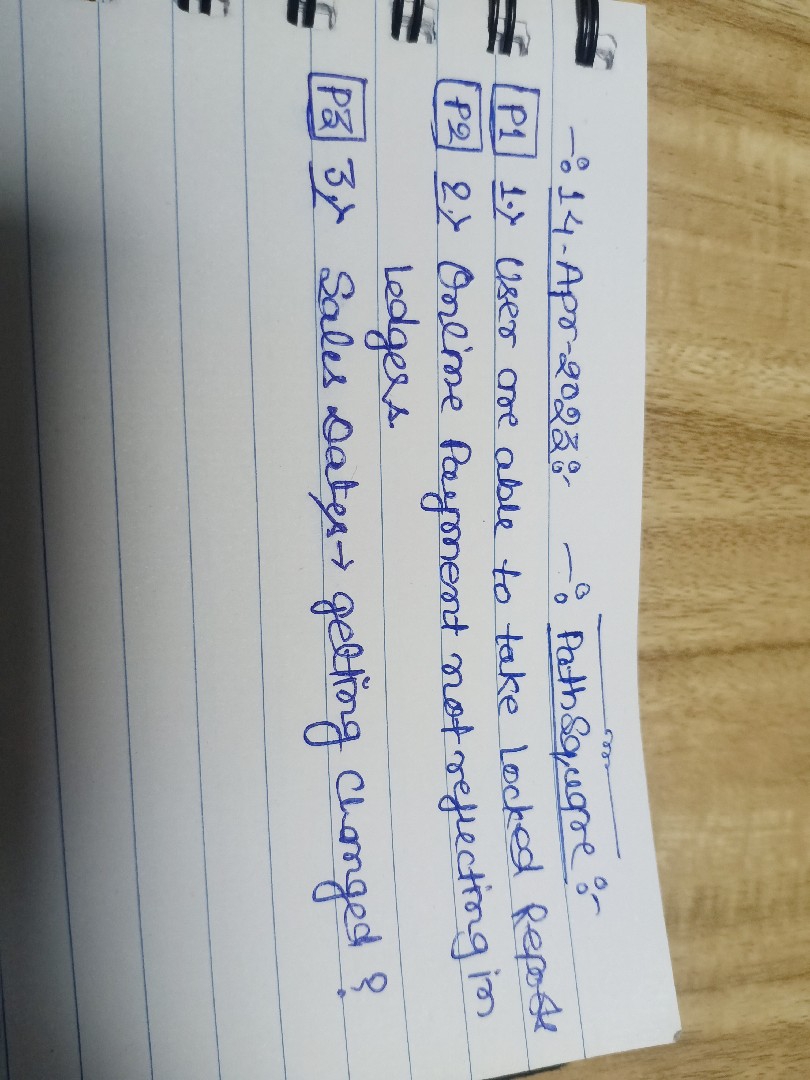 -: 14-Apr-2023 :- -: PathSquare :-
P1 1.> User are able to take locked Reports
P2 2.> Online Payment not reflecting in
ledgers.
P3 3.> Sales Dates → getting changed?